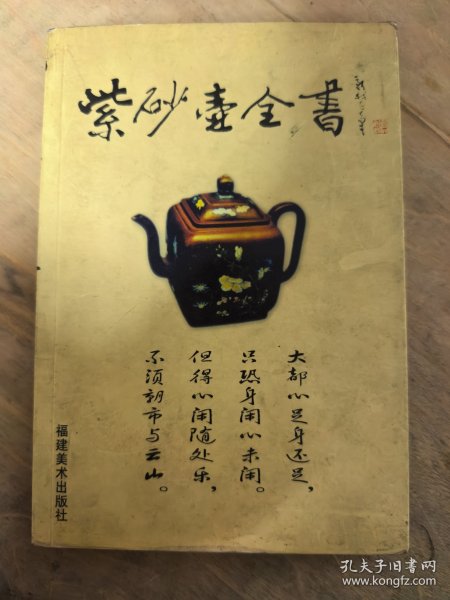 紫砂壶全書
大都心足身还足，
只恐身闲心未闲。
但得心闲随处乐，
不须朝市与云山。
福建美术出版社
孔夫子旧书网
www.kongfz.com